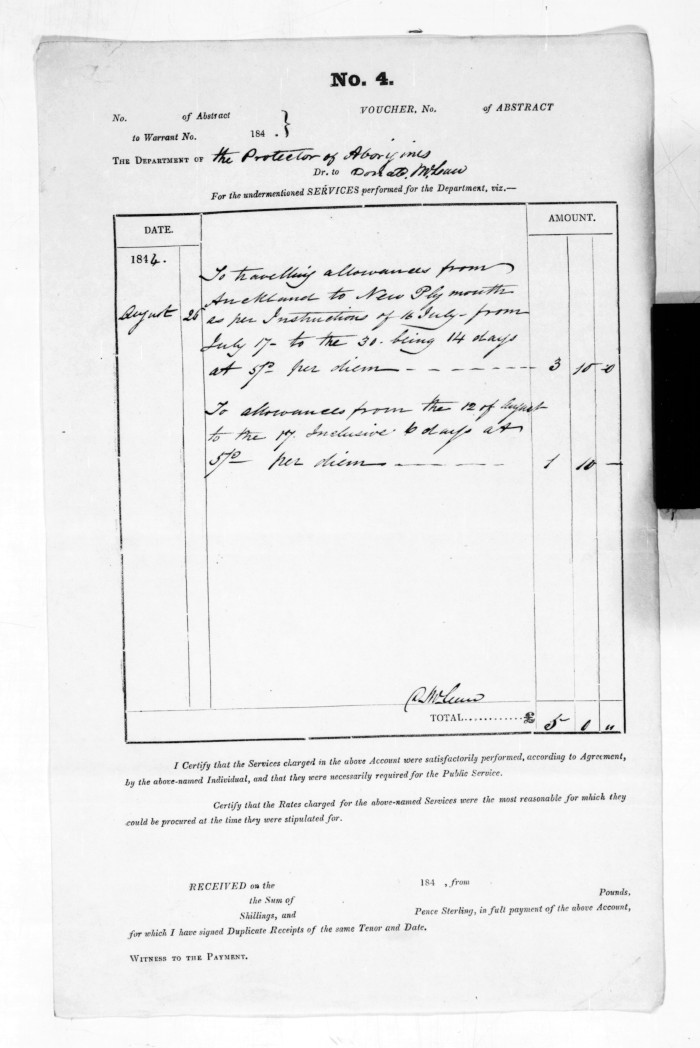 No. 4.
No. of Abstract
to Warrant No. 184 . }
VOUCHER, No. of ABSTRACT
THE DEPARTMENT OF the Protector of Aborigines
Dr. to Donald McLean
For the undermentioned SERVICES performed for the Department, viz.—
DATE.
AMOUNT.
1844.
To travelling allowances from
Auckland to New Plymouth
August 26 as per Instructions of 16 July - from
July 17 - to the 30. being 14 days
at 5/- per diem - - - - - - - 3 10 0
To allowances from the 12 of August
to the 17. Inclusive 6 days at
5/- per diem - - - - - 1 10 -
D. McLean
TOTAL............£ 5 0 "
I Certify that the Services charged in the above Account were satisfactorily performed, according to Agreement,
by the above-named Individual, and that they were necessarily required for the Public Service.
Certify that the Rates charged for the above-named Services were the most reasonable for which they
could be procured at the time they were stipulated for.
RECEIVED on the 184 , from
the Sum of Pounds,
Shillings, and Pence Sterling, in full payment of the above Account,
for which I have signed Duplicate Receipts of the same Tenor and Date.
WITNESS TO THE PAYMENT.